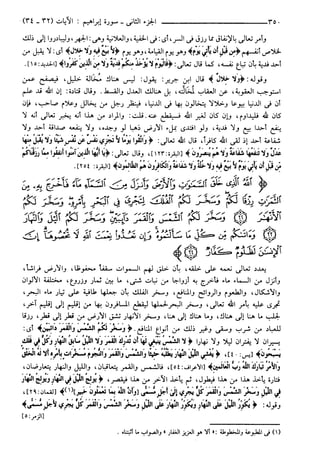 ٣٥٠ الجزء الثاني ـ سورة إبراهيم: الآيات (٣٢ ـ ٣٤)
وأمر تعالى بالإنفاق مما رزق في السر، أي: في الخفية، والعلانية وهي: الجهر، وليبادروا إلى ذلك
لخلاص أنفسهم ﴿مِّن قَبْلِ أَن يَأْتِيَ يَوْمٌ﴾ وهو يوم القيامة، وهو يوم ﴿لَّا بَيْعٌ فِيهِ وَلَا خِلَالٌ﴾ أي: لا يقبل من
أحد فدية بأن تباع نفسه، كما قال تعالى: ﴿فَالْيَوْمَ لَا يُؤْخَذُ مِنكُمْ فِدْيَةٌ وَلَا مِنَ الَّذِينَ كَفَرُوا﴾ [الحديد: ١٥].
وقوله: ﴿وَلَا خِلَالٌ﴾ قال ابن جرير: يقول: ليس هناك مُخالّة خليل، فيصفح عمن
استوجب العقوبة، عن العقاب لمُخالّته، بل هنالك العدل والقسط. وقال قتادة: إن الله قد علم
أن في الدنيا بيوعا وخلالا يتخالون بها في الدنيا، فينظر رجل من يخالل وعلام صاحب، فإن
كان لله فليداوم، وإن كان لغير الله فسيقطع عنه. قلت: والمراد من هذا أنه يخبر تعالى أنه لا
ينفع أحدا بيع ولا فدية، ولو افتدى بملء الأرض ذهبا لو وجده، ولا ينفعه صداقة أحد ولا
شفاعة أحد إذا لقي الله كافرا، قال الله تعالى: ﴿وَاتَّقُوا يَوْمًا لَّا تَجْزِي نَفْسٌ عَن نَّفْسٍ شَيْئًا وَلَا يُقْبَلُ مِنْهَا
عَدْلٌ وَلَا تَنفَعُهَا شَفَاعَةٌ وَلَا هُمْ يُنصَرُونَ﴾ [البقرة: ١٢٣]، وقال تعالى: ﴿يَا أَيُّهَا الَّذِينَ آمَنُوا أَنفِقُوا مِمَّا رَزَقْنَاكُم
مِّن قَبْلِ أَن يَأْتِيَ يَوْمٌ لَّا بَيْعٌ فِيهِ وَلَا خُلَّةٌ وَلَا شَفَاعَةٌ وَالْكَافِرُونَ هُمُ الظَّالِمُونَ﴾ [البقرة: ٢٥٤].
﴿اللَّهُ الَّذِي خَلَقَ السَّمَاوَاتِ وَالْأَرْضَ وَأَنزَلَ مِنَ السَّمَاءِ مَاءً فَأَخْرَجَ بِهِ
مِنَ الثَّمَرَاتِ رِزْقًا لَّكُمْ وَسَخَّرَ لَكُمُ الْفُلْكَ لِتَجْرِيَ فِي الْبَحْرِ بِأَمْرِهِ
وَسَخَّرَ لَكُمُ الْأَنْهَارَ وَسَخَّرَ لَكُمُ الشَّمْسَ وَالْقَمَرَ دَائِبَيْنِ وَسَخَّرَ لَكُمُ اللَّيْلَ وَالنَّهَارَ
وَآتَاكُم مِّن كُلِّ مَا سَأَلْتُمُوهُ وَإِن تَعُدُّوا نِعْمَتَ اللَّهِ لَا تُحْصُوهَا إِنَّ
الْإِنسَانَ لَظَلُومٌ كَفَّارٌ﴾
يعدد تعالى نعمه على خلقه، بأن خلق لهم السموات سقفا محفوظا، والأرض فراشا،
وأنزل من السماء ماء فأخرج به أزواجا من نبات شتى، ما بين ثمار وزروع، مختلفة الألوان
والأشكال، والطعوم والروائح والمنافع، وسخر الفلك بأن جعلها طافية على تيار ماء البحر،
تجري عليه بأمر الله تعالى، وسخر البحر لحملها ليقطع المسافرون بها من إقليم إلى إقليم آخر،
لجلب ما هنا إلى هناك، وما هناك إلى هنا، وسخر الأنهار تشق الأرض من قطر إلى قطر، رزقا
للعباد من شرب وسقي وغير ذلك من أنواع المنافع. ﴿وَسَخَّرَ لَكُمُ الشَّمْسَ وَالْقَمَرَ دَائِبَيْنِ﴾ أي:
يسيران لا يفتران ليلا ولا نهارا ﴿لَا الشَّمْسُ يَنبَغِي لَهَا أَن تُدْرِكَ الْقَمَرَ وَلَا اللَّيْلُ سَابِقُ النَّهَارِ وَكُلٌّ فِي فَلَكٍ
يَسْبَحُونَ﴾ [يس: ٤٠]، ﴿يُغْشِي اللَّيْلَ النَّهَارَ يَطْلُبُهُ حَثِيثًا وَالشَّمْسَ وَالْقَمَرَ وَالنُّجُومَ مُسَخَّرَاتٍ بِأَمْرِهِ أَلَا لَهُ الْخَلْقُ
وَالْأَمْرُ تَبَارَكَ اللَّهُ رَبُّ الْعَالَمِينَ﴾ [الأعراف: ٥٤]، فالشمس والقمر يتعاقبان، والليل والنهار يتعارضان،
فتارة يأخذ هذا من هذا فيطول، ثم يأخذ الآخر من هذا فيقصر، ﴿يُولِجُ اللَّيْلَ فِي النَّهَارِ وَيُولِجُ النَّهَارَ
فِي اللَّيْلِ وَسَخَّرَ الشَّمْسَ وَالْقَمَرَ كُلٌّ يَجْرِي إِلَىٰ أَجَلٍ مُّسَمًّى ﴿وَأَنَّ اللَّهَ بِمَا تَعْمَلُونَ خَبِيرٌ﴾(١)﴾ [لقمان: ٢٩]،
وقوله: ﴿يُكَوِّرُ اللَّيْلَ عَلَى النَّهَارِ وَيُكَوِّرُ النَّهَارَ عَلَى اللَّيْلِ وَسَخَّرَ الشَّمْسَ وَالْقَمَرَ كُلٌّ يَجْرِي لِأَجَلٍ مُّسَمًّى﴾
[الزمر: ٥]
(١) في المطبوعة والمخطوطة: «ألا هو العزيز الغفار» والصواب ما أثبتناه.